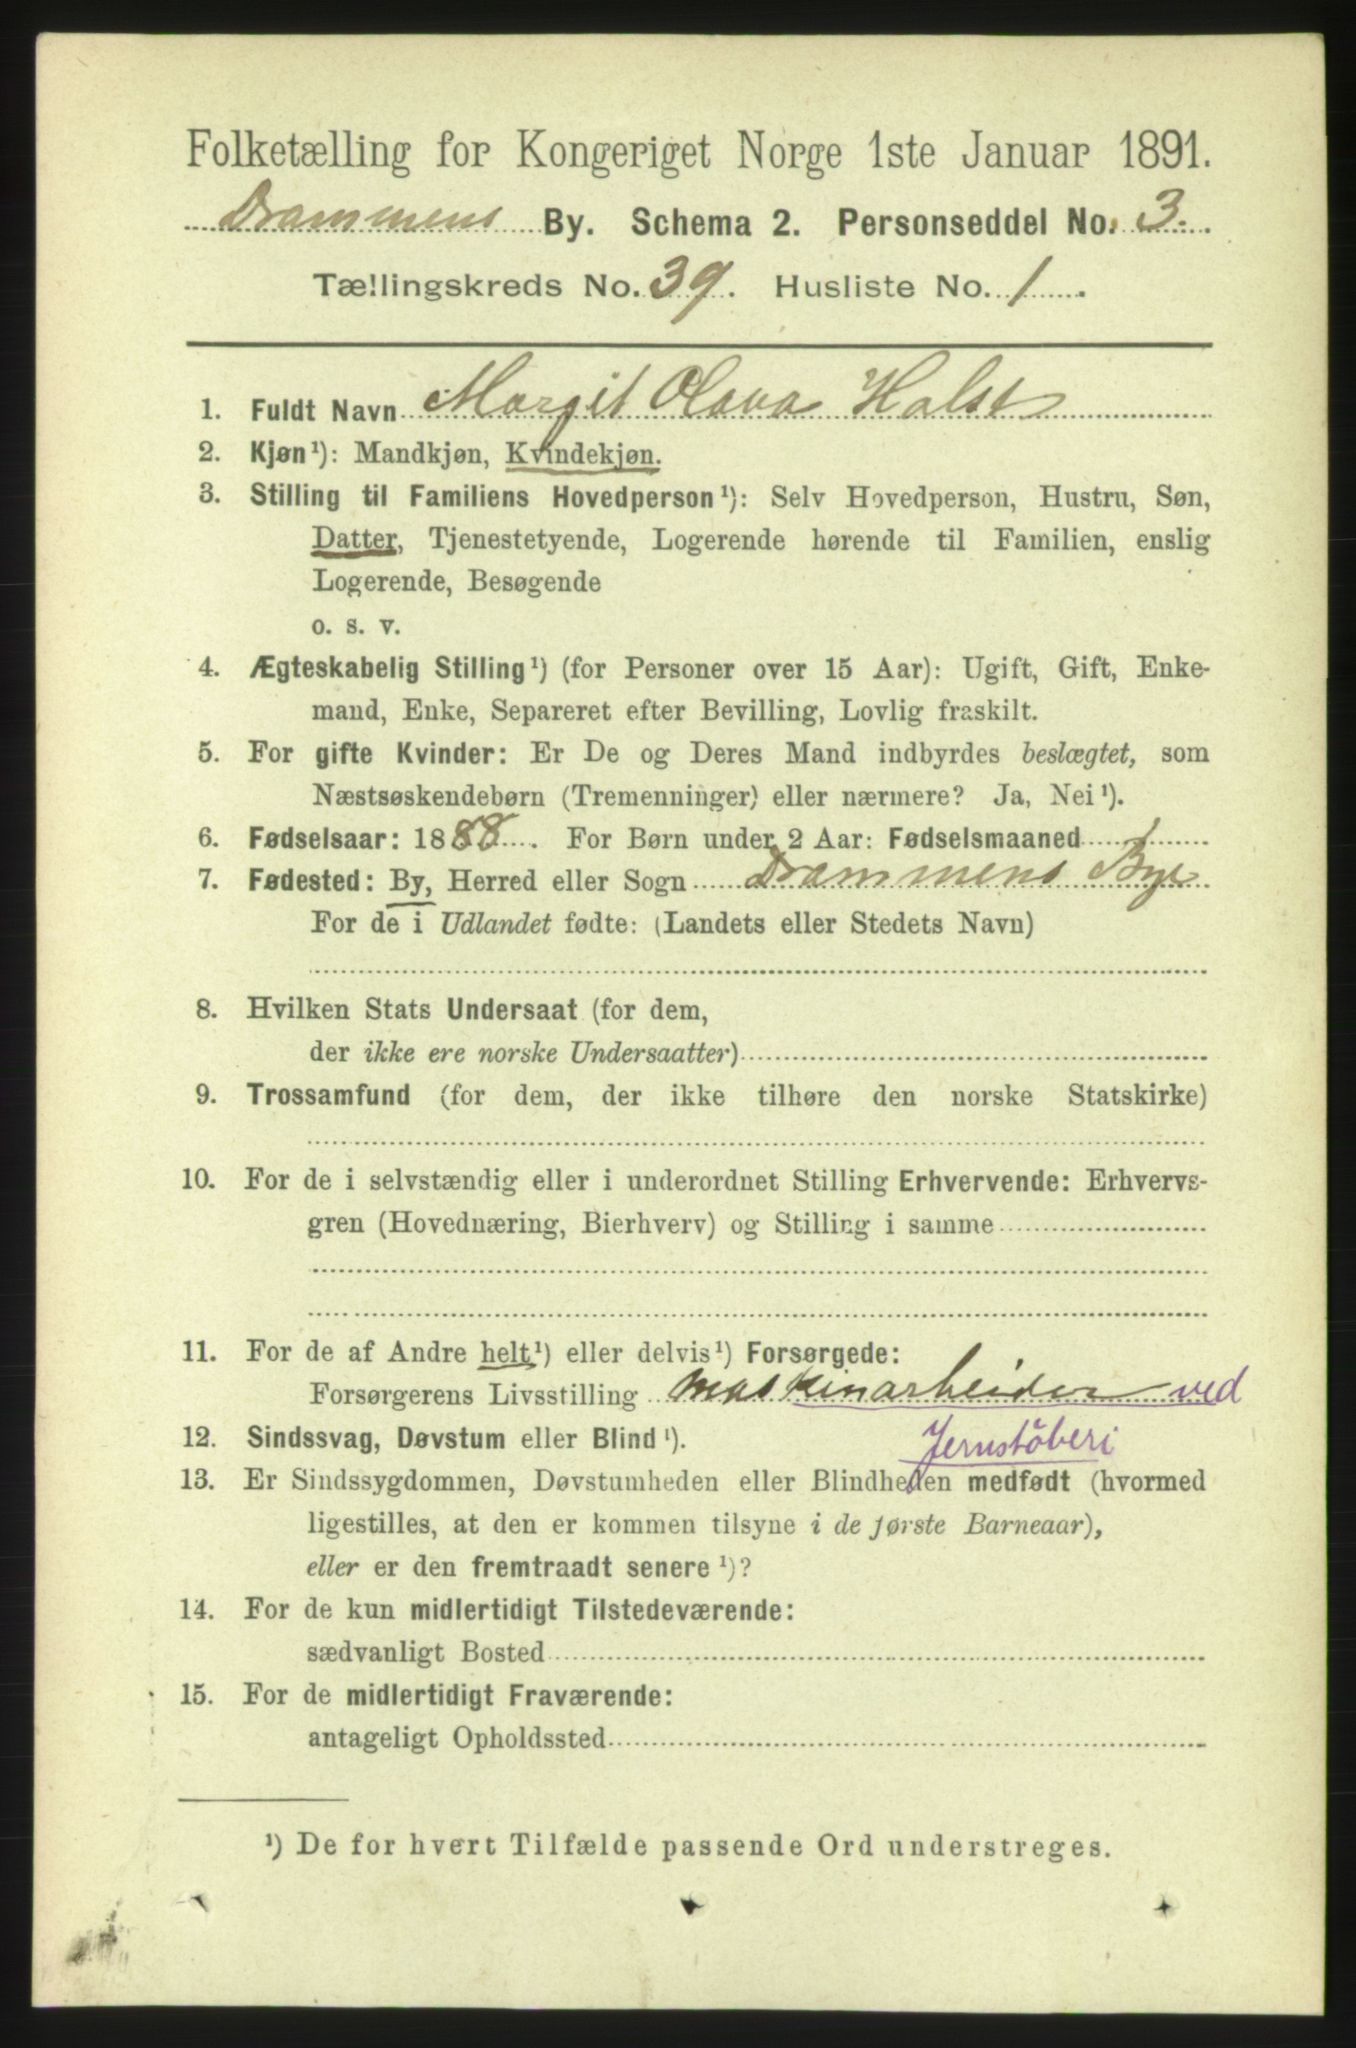 Folketælling for Kongeriget Norge 1ste Januar 1891.
Drammens By. Schema 2. Personseddel No. 3.
Tællingskreds No. 39. Husliste No. 1.
1. Fuldt Navn Margit Olava Halse
2. Kjøn¹): Mandkjøn, Kvindekjøn.
3. Stilling til Familiens Hovedperson¹): Selv Hovedperson, Hustru, Søn,
Datter, Tjenestetyende, Logerende hørende til Familien, enslig
Logerende, Besøgende
o. s. v.
4. Ægteskabelig Stilling¹) (for Personer over 15 Aar): Ugift, Gift, Enke-
mand, Enke, Separeret efter Bevilling, Lovlig fraskilt.
5. For gifte Kvinder: Er De og Deres Mand indbyrdes beslægtet, som
Næstsøskendebørn (Tremenninger) eller nærmere? Ja, Nei¹).
6. Fødselsaar: 1888. For Børn under 2 Aar: Fødselsmaaned
7. Fødested: By, Herred eller Sogn Drammens Bye
For de i Udlandet fødte: (Landets eller Stedets Navn)
8. Hvilken Stats Undersaat (for dem,
der ikke ere norske Undersaatter)
9. Trossamfund (for dem, der ikke tilhøre den norske Statskirke)
10. For de i selvstændig eller i underordnet Stilling Erhvervende: Erhvervs-
gren (Hovednæring, Bierhverv) og Stilling i samme
11. For de af Andre helt¹) eller delvis¹) Forsørgede:
Forsørgerens Livsstilling maskinarbeider ved
Jernstöberi
12. Sindssvag, Døvstum eller Blind¹).
13. Er Sindssygdommen, Døvstumheden eller Blindheden medfødt (hvormed
ligestilles, at den er kommen tilsyne i de første Barneaar),
eller er den fremtraadt senere¹)?
14. For de kun midlertidigt Tilstedeværende:
sædvanligt Bosted
15. For de midlertidigt Fraværende:
antageligt Opholdssted
¹) De for hvert Tilfælde passende Ord understreges.